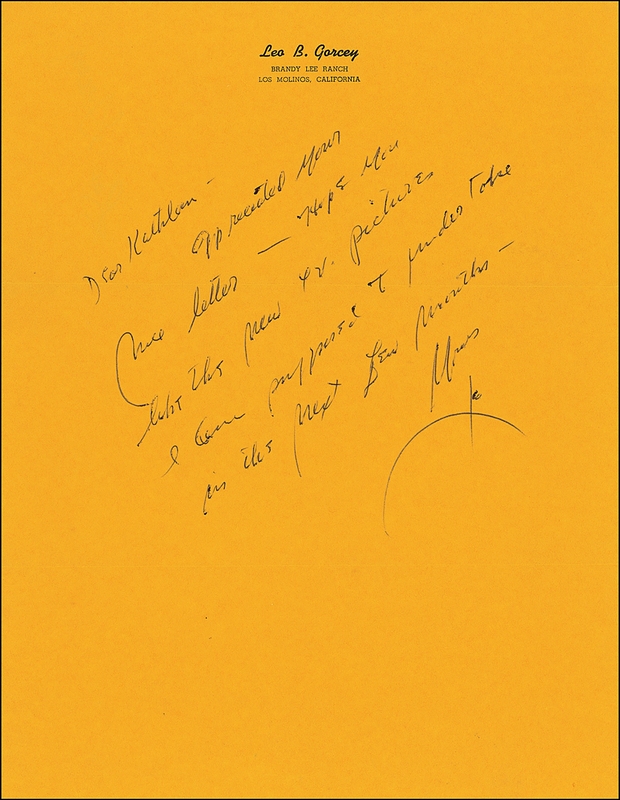 Leo B. Gorcey
BRANDY LEE RANCH
LOS MOLINOS, CALIFORNIA
Dear Kathleen -
Appreciated your
nice letter — Hope you
like the new T.V. pictures
I am supposed to undertake
in the next few months -
Yours